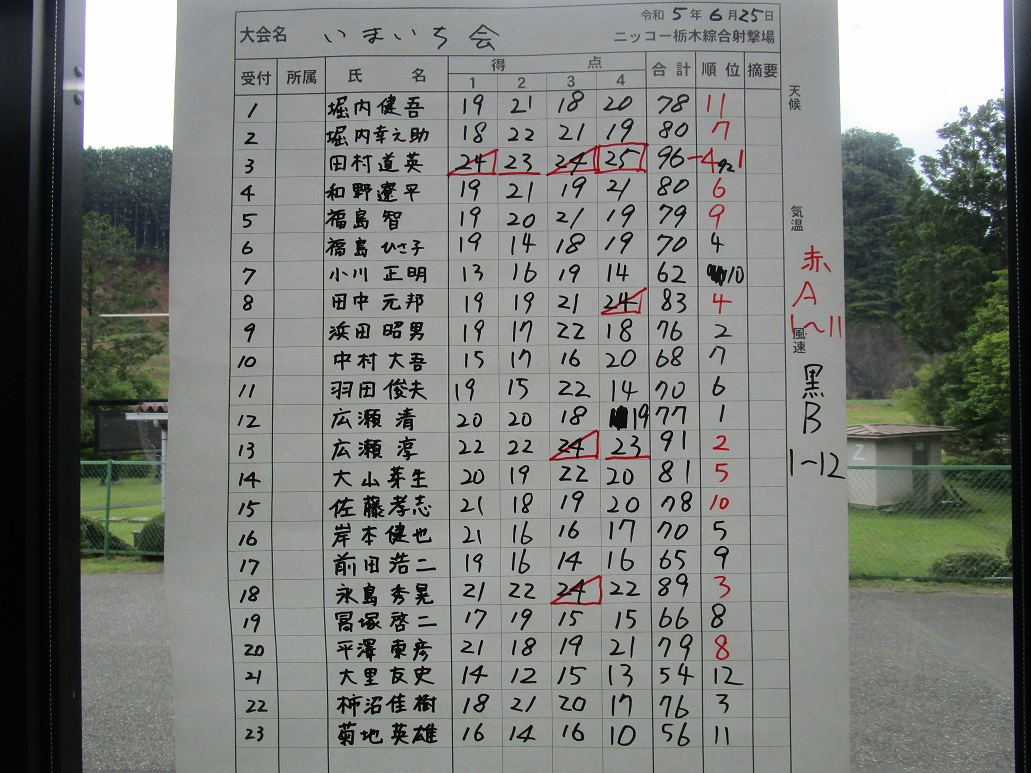 令和 5 年 6 月 25 日
大会名 いまいち会 ニッコー栃木綜合射撃場
受付 所属 氏 名 得 点 合計 順位 摘要
1 2 3 4
1 堀内健吾 19 21 18 20 78 11
2 堀内幸之助 18 22 21 19 80 7
3 田村道英 24 23 24 25 96 -4 92 1
4 和野遼平 19 21 19 21 80 6
5 福島 智 19 20 21 19 79 9
6 福島 ひさ子 19 14 18 19 70 4
7 小川 正明 13 16 19 14 62 10
8 田中 元邦 19 19 21 24 83 4
9 浜田 昭男 19 17 22 18 76 2
10 中村 大吾 15 17 16 20 68 7
11 羽田 俊夫 19 15 22 14 70 6
12 広瀬 清 20 20 18 19 77 1
13 広瀬 淳 22 22 24 23 91 2
14 大山芽生 20 19 22 20 81 5
15 佐藤孝志 21 18 19 20 78 10
16 岸本健也 21 16 16 17 70 5
17 前田浩二 19 16 14 16 65 9
18 永島秀晃 21 22 24 22 89 3
19 塚啓二 17 19 15 15 66 8
20 平澤東彦 21 18 19 21 79 8
21 大里友史 14 12 15 13 54 12
22 柿沼佳樹 18 21 20 17 76 3
23 菊地英雄 16 14 16 10 56 11
天候
気温
赤
A
1〜11
風速
黒
B
1〜12